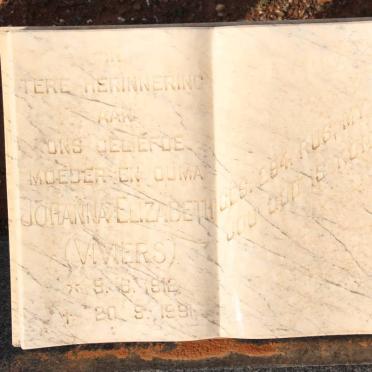 IN
TERE HERINNERING
AAN
ONS GELIEFDE
MOEDER EN OUMA
JOHANNA ELIZABETH
(VIVIERS)
* 9. 6. 1912
20. 9. 1991
GES. 284. RUS MY